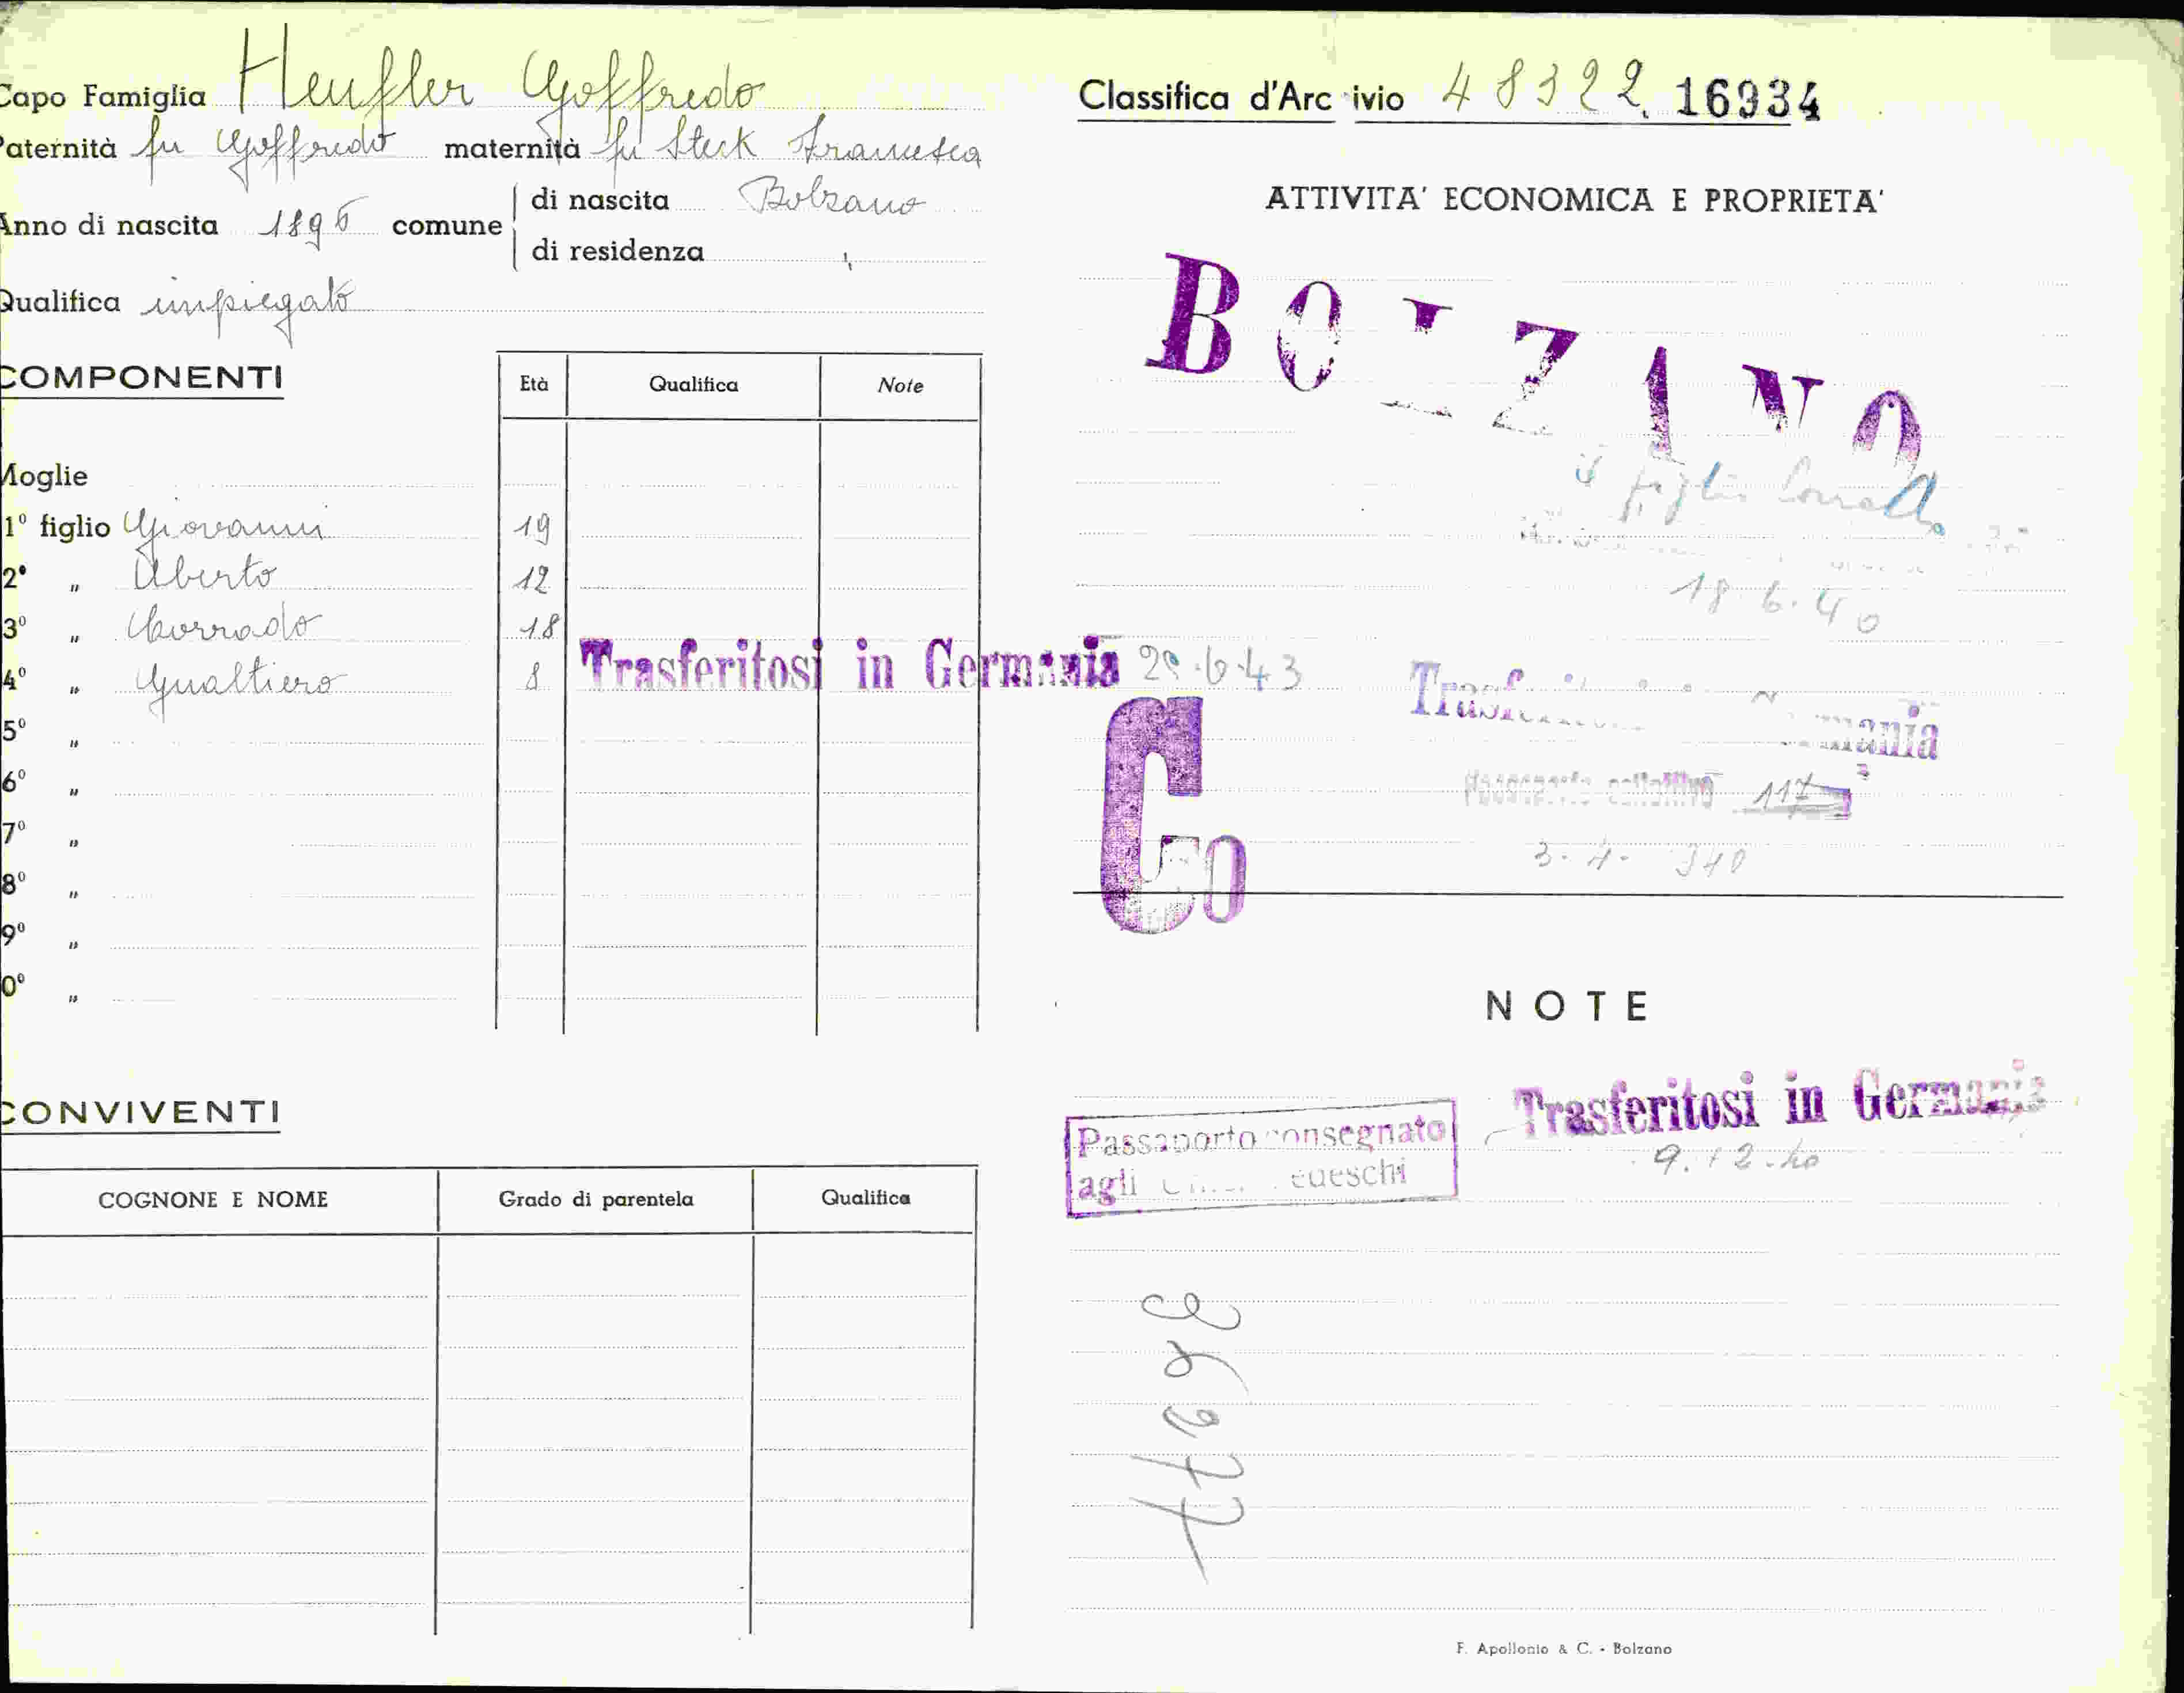 Capo Famiglia Heufler Goffredo
Paternità fu Goffredo maternità fu Steck Francesca
Anno di nascita 1896 comune di nascita Bolzano
di residenza "
Qualifica impiegato
COMPONENTI
Età Qualifica Note
Moglie
1º figlio Giovanni 19
2º " Uberto 12
3º " Corrado 18
4º " Gualtiero 8 Trasferitosi in Germania 29.6.43
5º "
6º "
7º "
8º "
9º "
0º "
CONVIVENTI
COGNONE E NOME Grado di parentela Qualifica
Classifica d'Archivio 48322 16934
ATTIVITA' ECONOMICA E PROPRIETA'
BOLZANO
il figlio Corrado
18.6.40
Trasferitosi in Germania
Passaporto collettivo 117
3.4.940
Co
NOTE
Trasferitosi in Germania
9.12.40
Passaporto consegnato
agli tedeschi
F. Apollonio & C. - Bolzano